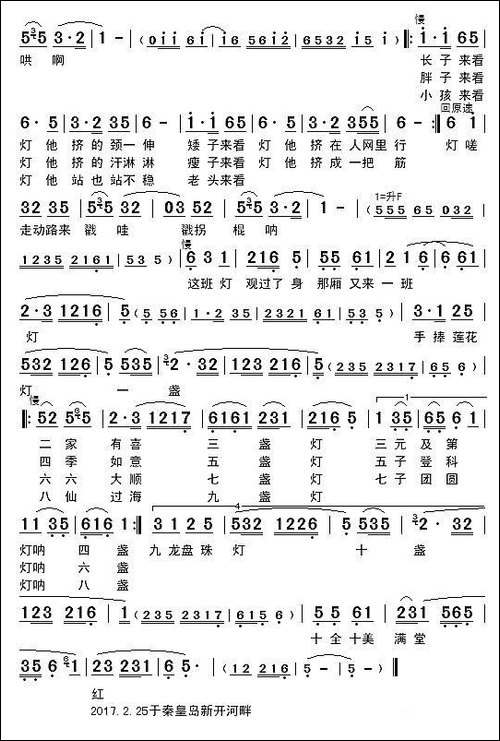 慢
5 3 5 3·2 1 - (0 1 1 6 1 1 2 5 6 1 2 6 5 3 2 1 5 1) 1·1 6 5
哄 啊 长 子 来看
胖 子 来看
小 孩 来看
回原速
6·5 3·2 3 5 1·1 6 5 6·5 3·2 3 5 6· 5 6 1
灯 他 挤 的 颈一 伸 矮 子来看 灯 他 挤 在 人网里 行 灯 嗟
灯 他 挤 的 汗淋 淋 瘦 子来看 灯 他 挤 成 一把 筋
灯 他 站 也 站不 稳 老 头来看
1=升F
3 2 3 5 5 3 5 3·2 0 3 5 2 5 3 5 3·2 1 - (5 5 5 6 5 0 3 2
走动路来 戳 哇 戳拐 棍 呐
慢
1 2 3 5 2 1 6 1) 6 3 1 2 1 6 5 5 1 6 1 2 1 6 6 6 1
这班 灯 观过了 身 那厢 又来 一 班
2·3 1 2 1 6 5 (5 5 6 1·2 3 5 2 3 2 1 6 1 5 3 5 5) 3·1 2 5
灯 手 捧 莲花
5 3 2 1 2 6 5 5 3 5 2·3 2 1 2 1 6 5 (2 3 5 2 3 1 7 6 1 5)
灯 一 盏
慢
5 2 5 5 2·3 1 2 1 7 6 1 6 1 2 3 1 2 1 6 5 1 3 5 6 5 6 1
二 家 有 喜 三 盏 灯 三 元 及 第
四 季 如 意 五 盏 灯 五 子 登 科
六 六 大 顺 七 盏 灯 七 子 团 圆
八 仙 过 海 九 盏 灯
1 1 3 5 6 1 6 1 3 1 2 5 5 3 2 1 2 2 6 5 5 3 5 2·3 2
灯呐 四 盏 九 龙盘 珠 灯 十 盏
灯呐 六 盏
灯呐 八 盏
1 2 3 2 1 6 1 (2 3 5 2 3 1 7 6 1 5) 5 5 6 1 2 3 1 5 6 5
十 全 十美 满 堂
3 5 6 2 3 2 3 1 6 5· 5 -
红
2017. 2. 25于秦皇岛新开河畔